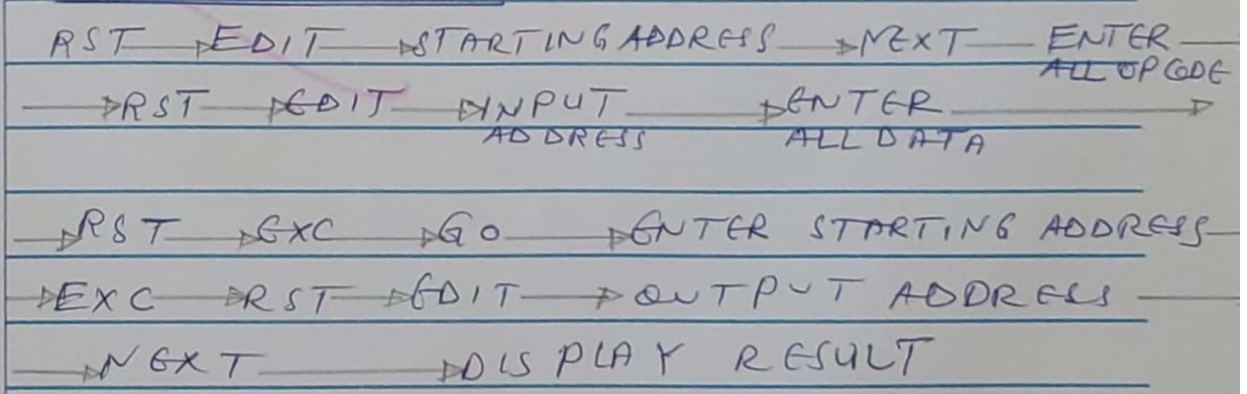 RST → EDIT → STARTING ADDRESS → NEXT — ENTER
ALL OPCODE
→ RST → EDIT → INPUT → ENTER →
ADDRESS ALL DATA
→ RST → EXC → GO → ENTER STARTING ADDRESS
→ EXC → RST → EDIT → OUTPUT ADDRESS
→ NEXT → DISPLAY RESULT